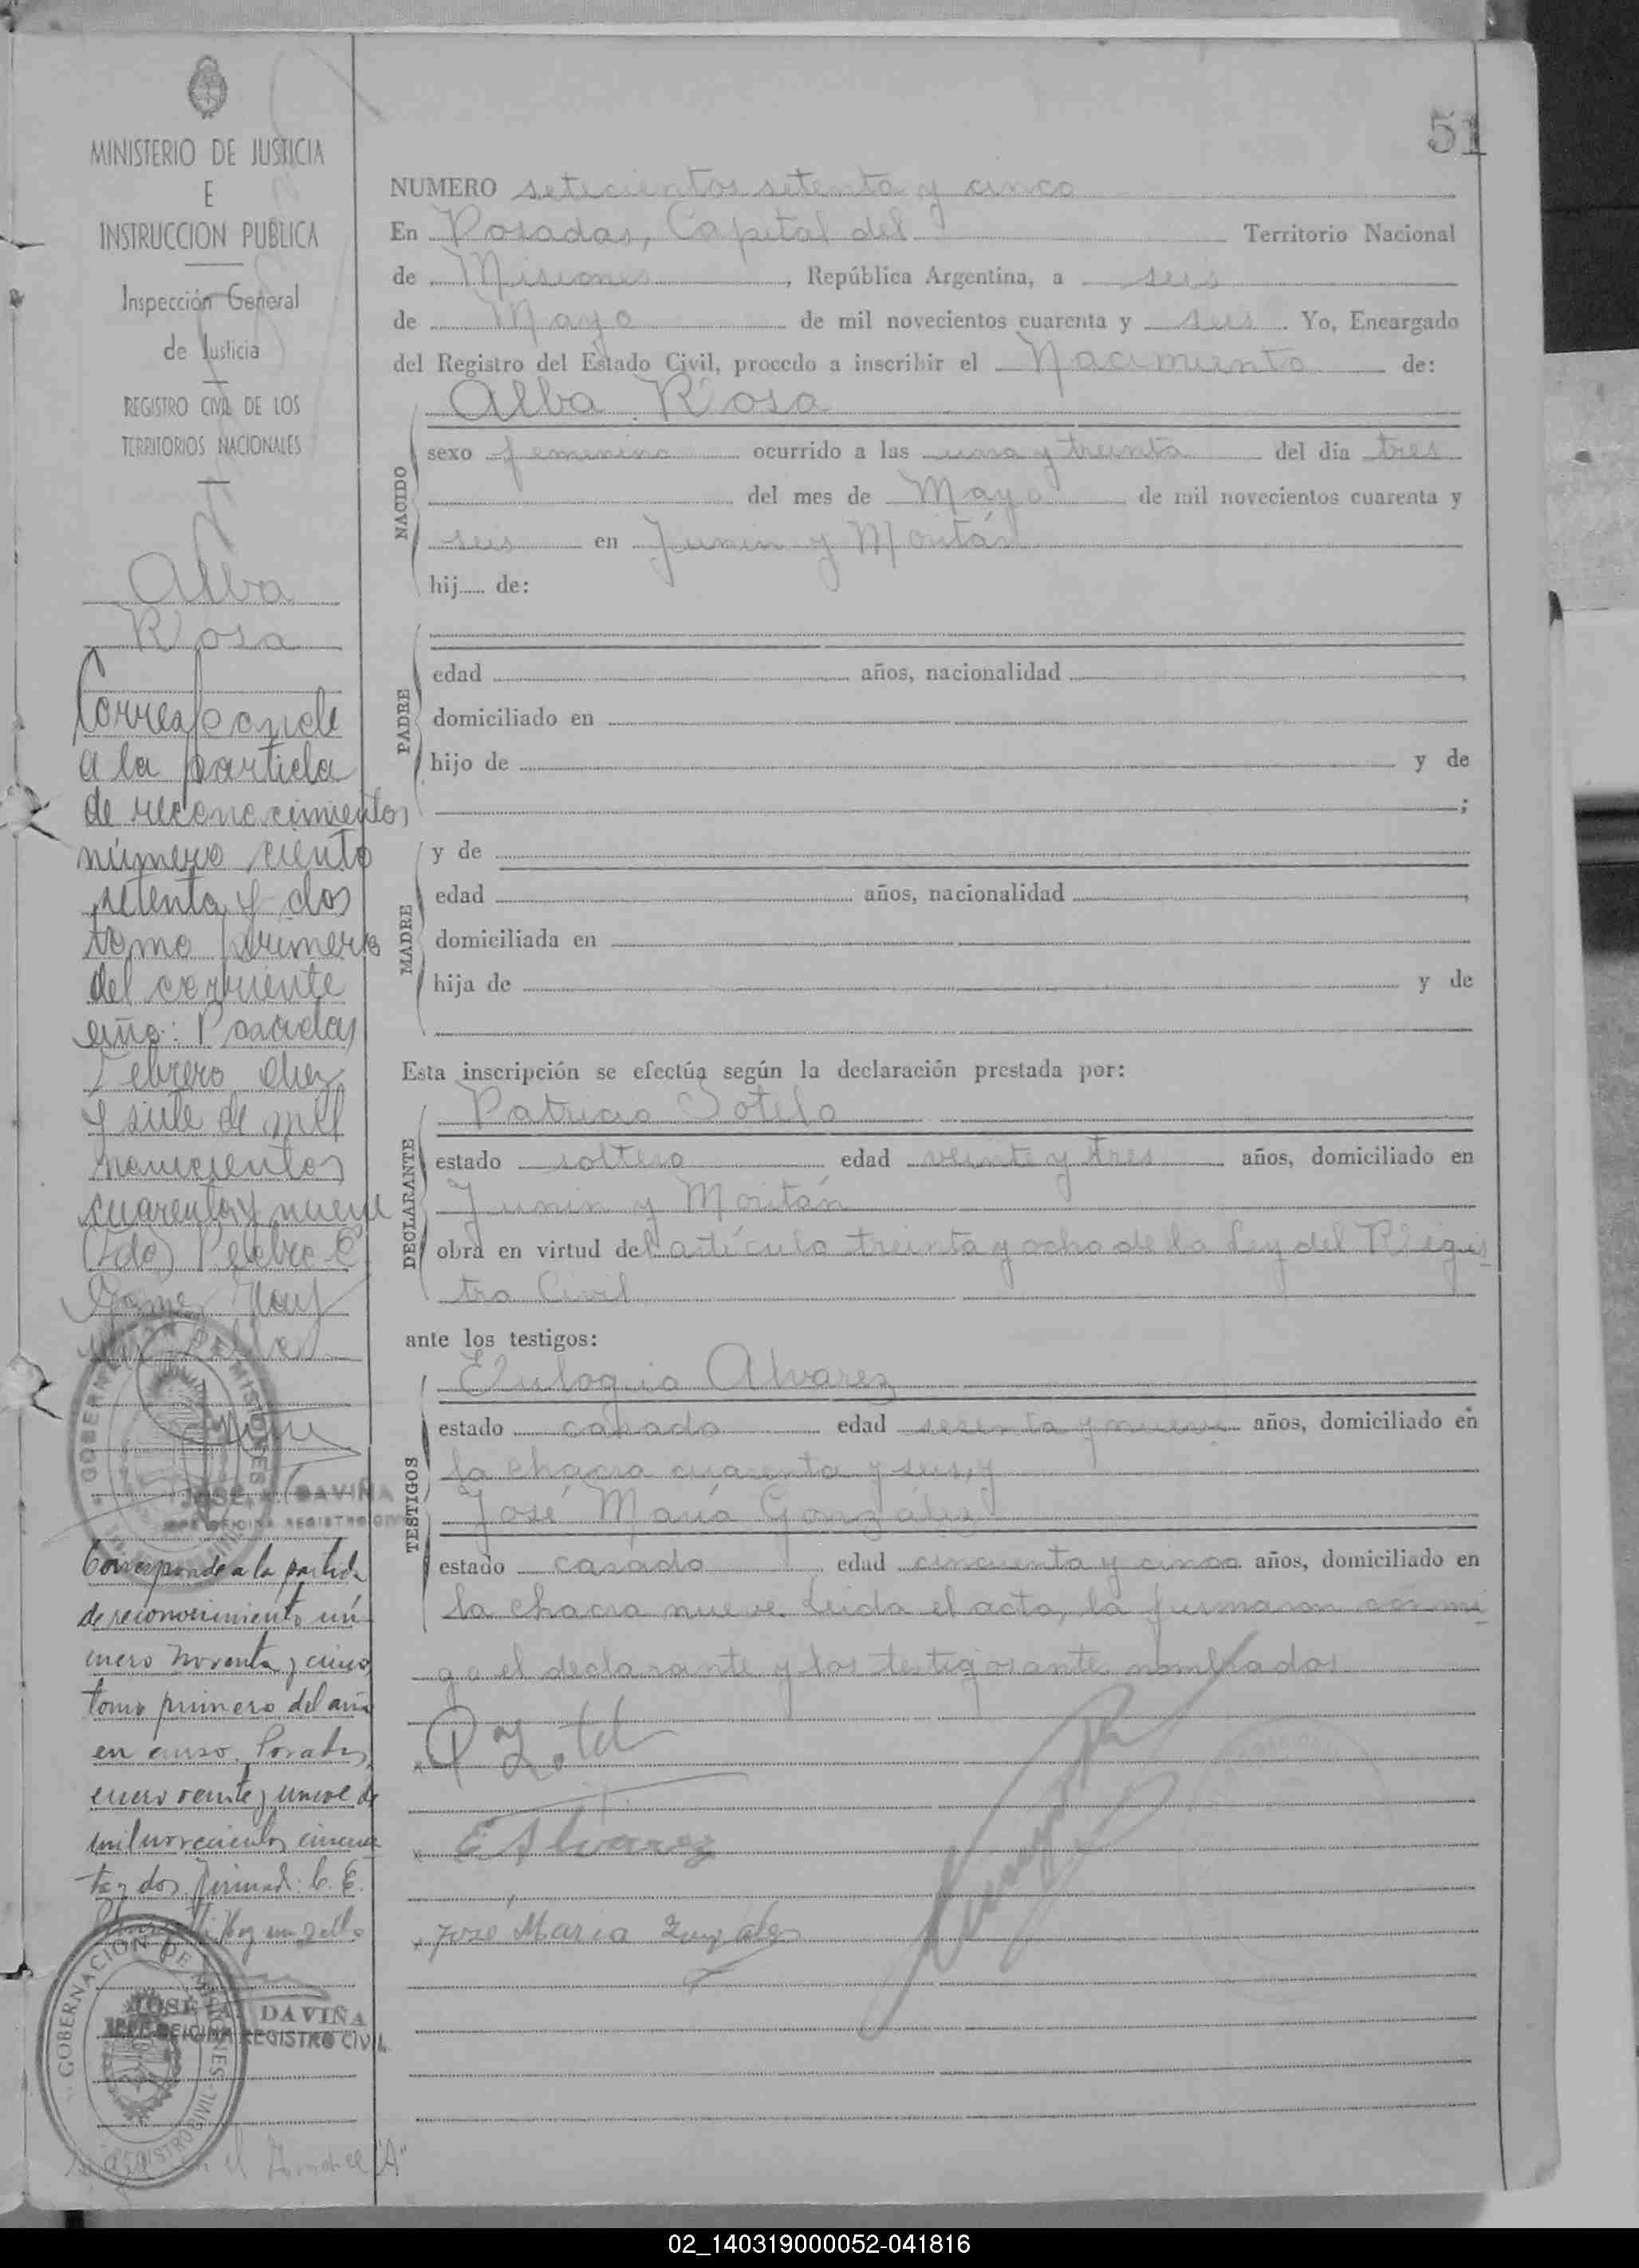 MINISTERIO DE JUSTICIA
E
INSTRUCCION PUBLICA
Inspección General
de Justicia
REGISTRO CIVIL DE LOS
TERRITORIOS NACIONALES
Alba
Rosa
Corresponde
a la partida
de reconocimientos
número ciento
setenta y dos
tomo primero
del corriente
año: Posadas
Febrero diez
y siete de mil
novecientos
cuarenta y nueve
(Fdo) Pedro C
Gómez Hay
un sello
GOBERNACION DE MISIONES
JOSE A. DAVIÑA
JEFE OFICINA REGISTRO CIVIL
Corresponde a la partida
de reconocimiento nú-
mero noventa y cinco,
tomo primero del año
en curso. Posadas,
enero veinte y nueve de
mil novecientos cincuen
ta y dos. Firmad: C. E.
Hay un sello
GOBERNACION DE MISIONES
REGISTRO CIVIL
JOSE A. DAVIÑA
JEFE OFICINA REGISTRO CIVIL
el "A"
51
NUMERO setecientos setenta y cinco
En Posadas, Capital del Territorio Nacional
de Misiones, República Argentina, a seis
de Mayo de mil novecientos cuarenta y seis. Yo, Encargado
del Registro del Estado Civil, procedo a inscribir el Nacimiento de:
NACIDO
Alba Rosa
sexo femenino ocurrido a las una y treinta del día tres
del mes de Mayo de mil novecientos cuarenta y
seis en Junin y Moritán
hij..... de:
PADRE
edad años, nacionalidad
domiciliado en
hijo de y de
;
MADRE
y de
edad años, nacionalidad
domiciliada en
hija de y de
Esta inscripción se efectúa según la declaración prestada por:
DECLARANTE
Patricio Sotelo
estado soltero edad veinte y tres años, domiciliado en
Junin y Moritán
obra en virtud del artículo treinta y ocho de la Ley del Regis
tro Civil
ante los testigos:
TESTIGOS
Eulogio Alvarez
estado casado edad sesenta y nueve años, domiciliado en
la chacra cuarenta y seis, y
José María González
estado casado edad cincuenta y cinco años, domiciliado en
la chacra nueve. Leida el acta, la firmaron conmi
go el declarante y los testigos antes nombrados
E Alvarez
José María Gonzalez
02_140319000052-041816